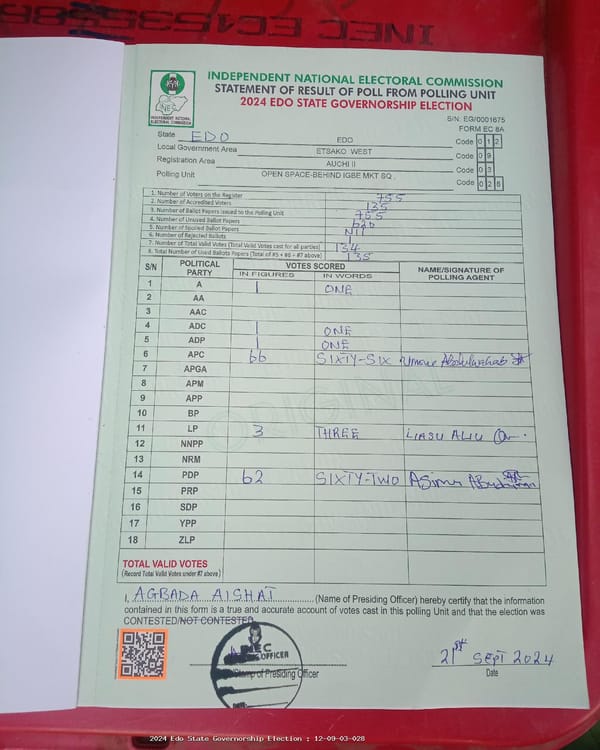 INEC EC
INDEPENDENT NATIONAL ELECTORAL COMMISSION
STATEMENT OF RESULT OF POLL FROM POLLING UNIT
2024 EDO STATE GOVERNORSHIP ELECTION
INEC
INDEPENDENT NATIONAL ELECTORAL COMMISSION
S/N: EG/0001675
FORM EC 8A
State EDO EDO Code 012
Local Government Area ETSAKO WEST Code 09
Registration Area AUCHI II Code 03
Polling Unit OPEN SPACE-BEHIND IGBE MKT SQ. Code 028
1. Number of Voters on the Register 755
2. Number of Accredited Voters 135
3. Number of Ballot Papers Issued to the Polling Unit 755
4. Number of Unused Ballot Papers 620
5. Number of Spoiled Ballot Papers NIL
6. Number of Rejected Ballots
7. Number of Total Valid Votes (Total Valid Votes cast for all parties) 134
8. Total Number of Used Ballots Papers (Total of #5 + #6 + #7 above) 135
S/N POLITICAL PARTY VOTES SCORED NAME/SIGNATURE OF POLLING AGENT
IN FIGURES IN WORDS
1 A 1 ONE
2 AA
3 AAC
4 ADC 1 ONE
5 ADP 1 ONE
6 APC 66 SIXTY-SIX Umoru Abdulwahab
7 APGA
8 APM
9 APP
10 BP
11 LP 3 THREE LIASU ALIU
12 NNPP
13 NRM
14 PDP 62 SIXTY-TWO
15 PRP
16 SDP
17 YPP
18 ZLP
ORIGINAL
TOTAL VALID VOTES
(Record Total Valid Votes under #7 above)
I, AGBADA AISHAT (Name of Presiding Officer) hereby certify that the information
contained in this form is a true and accurate account of votes cast in this polling Unit and that the election was
CONTESTED/NOT CONTESTED
INEC
OFFICER
21st SEPT 2024
/Stamp of Presiding Officer Date
DATE:
2024 Edo State Governorship Election : 12-09-03-028